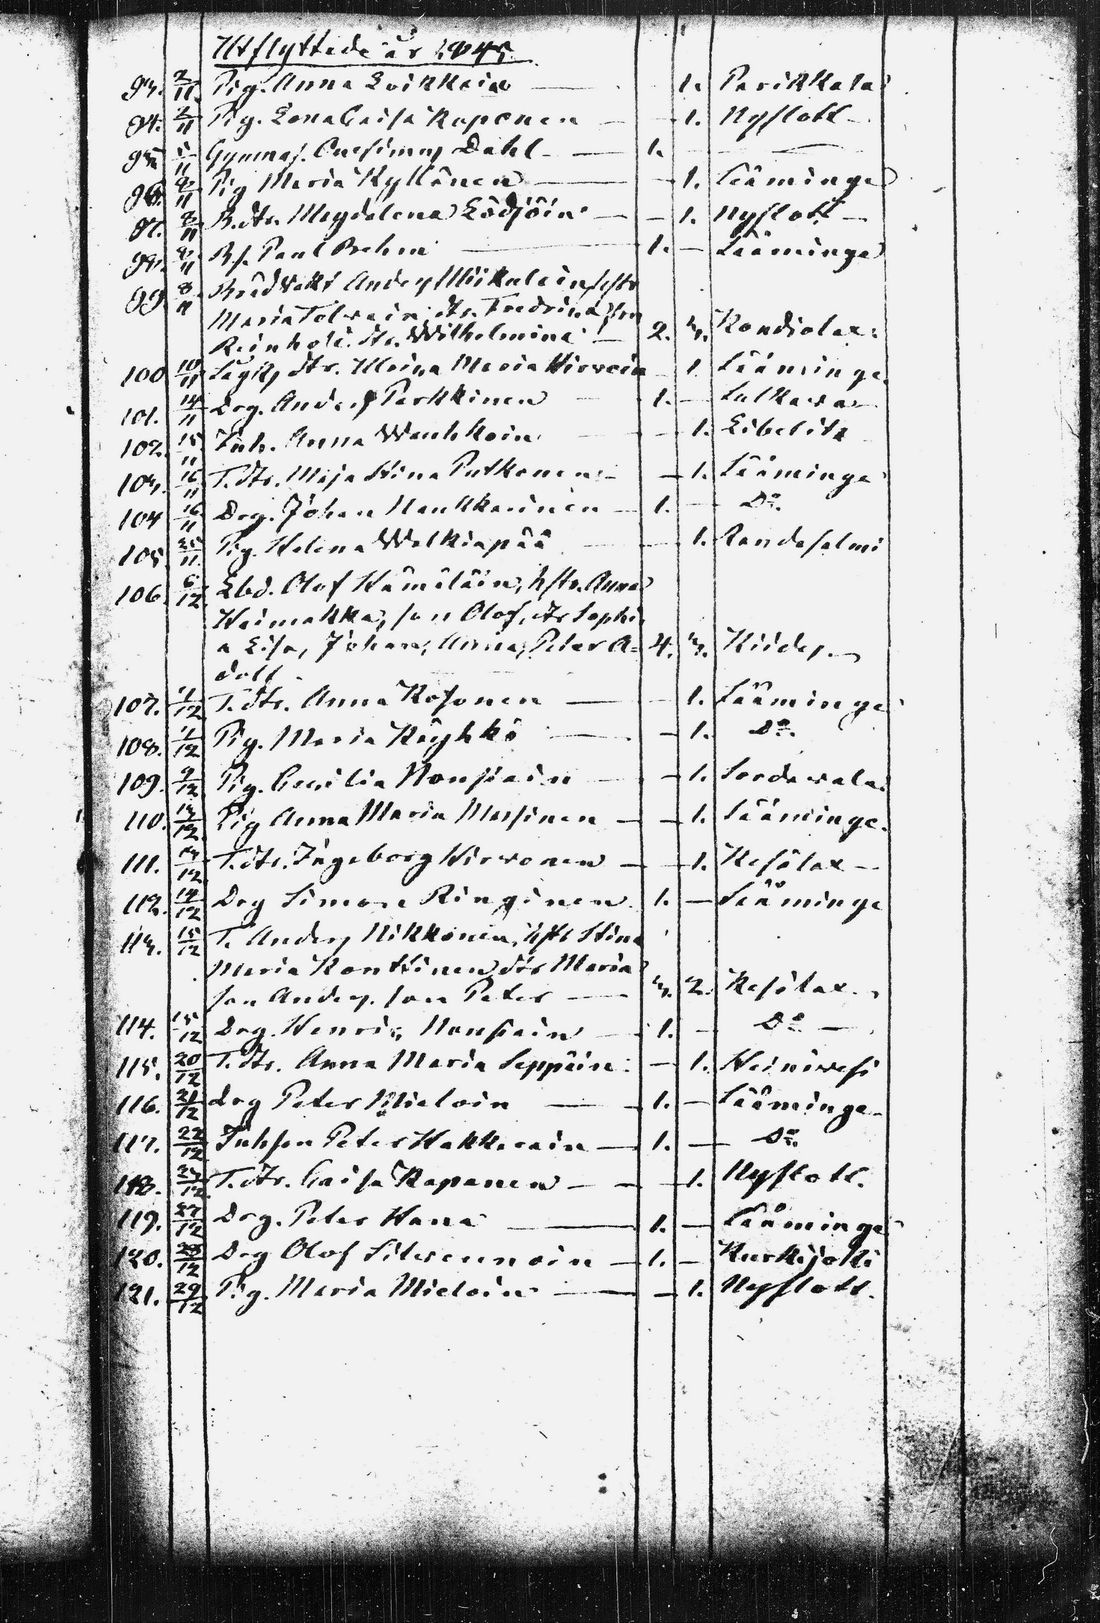 Utflyttade år 1845.
93. 2/11 Pig. Anna Loikkain — 1. Parikkala
94. 2/11 Pig. Lena Caisa Kaponen — 1. Nyslott
95. 5/11 Gymnas. Onesimus Dahl — 1. —
96. 8/11 Pig Maria Kyllönen — 1. Sääminge
97. 8/11 B.dtr. Magdalena — 1. Nyslott —
98. 8/11 Paul Brehm — 1. — Sääminge
99. 8/11 Anders Mikulain hstr
Maria dtr. Fredrina son
Reinhold dtr. Wilhelmina — 2. 3. Kondiolax
100 10/11 dtr. Maria Hirvoin — 1. Sääminge
101. 14/11 Drg. Anders Parkkinen — 1. — Sulkava —
102. 15/11 Inh. Anna Wauhkoin — 1. Libelitz
103. 16/11 T.dtr. Maja Stina Putkonen — 1. Sääminge
104 16/11 Drg. Johan Haukkarinen — 1. — Do.
105 25/11 Pig. Helena Walkiapää — 1. Randasalmi
106. 6/12 Lbd. Olof Hämäläin, hstr. Anna
Heimakka, son Olof, dtr Sophi
a Lisa, Johan, Anna, Peter A= 4. 3. Kides. —
dolf
107. 7/12 T.dtr. Anna Kosonen — 1. Sääminge
108. 7/12 Pig. Maria Käyhkö — 1. Do.
109. 9/12 Pig. Cecilia Nousiain — 1. Sordavala
110. 13/12 Pig Anna Maria Massinen — 1. Sääminge.
111. 13/12 T.dtr. Ingeborg Hirvonen — 1. Kesälax —
112. 14/12 Drg Simon Ringinen 1. — Sääminge
113. 15/12 T. Anders Nikkonen, hstr Stina
Maria Kontinen dtr Maria
son Anders. son Peter — 3. 2. Kesälax.
114. 15/12 Drg. Henric Nousiain — 1. — Do —
115. 20/12 T.dtr. Anna Maria Seppäin — 1. Heinävesi
116. 21/12 Drg Peter Mieloin — 1. — Sääminge
117. 22/12 Inhson Peter Hakkarain — 1. — Do.
118. 23/12 T.dtr. Caisa Kapanen — 1. Nyslott.
119. 27/12 Drg. Peter — 1. — Sääminge
120. 28/12 Drg Olof Silvennoin — 1. — Kurkijoki
121. 29/12 Pig. Maria Mieloin — 1. Nyslott.